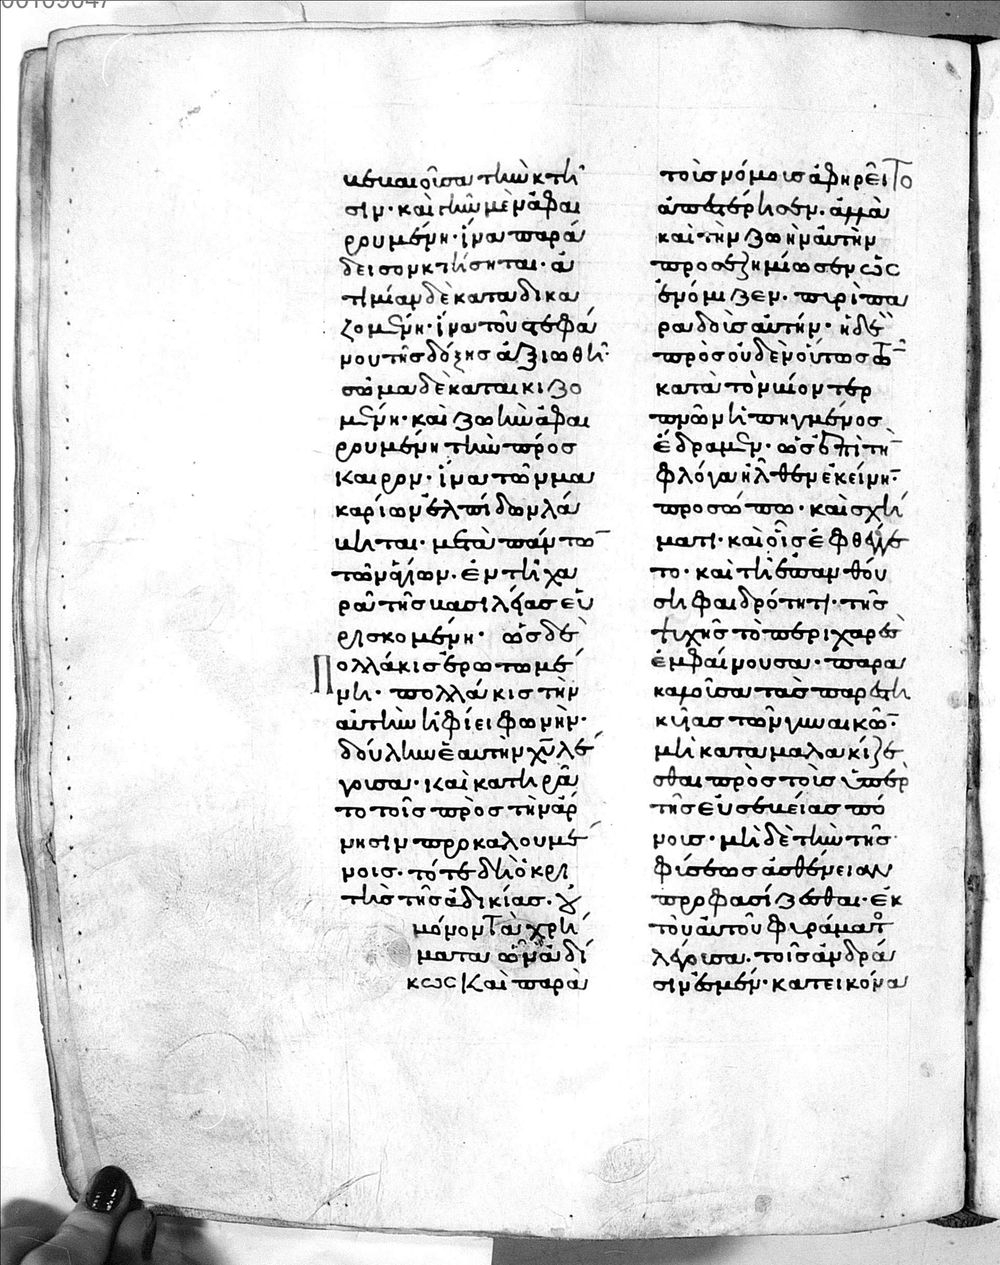 βεβαιοῦσα τὴν κτῆ
σιν· καὶ γῆν μὲν ἀφαι
ρουμένη· ἵνα παρά
δεισον κτήσηται· ἀ
τιμίαν δὲ καταδικα
ζομένη· ἵνα τοῦ στεφά
νου τῆς δόξης ἀξιωθῇ·
σῶμα δὲ καταικιζο
μένη· καὶ ζωὴν ἀφαι
ρουμένη τὴν πρόσ
καιρον· ἵνα τῶν μα
καρίων ἐλπίδων λά
βηται· μετὰ πάντων
τῶν ἁγίων· ἐν τῇ χα
ρᾷ τῆς βασιλείας εὑ
ρισκομένη· ὡς δὲ
Πολλάκις ἐρωτωμέ
νη· πολλάκις τὴν
αὐτὴν ἠφίει φωνὴν·
δούλην ἑαυτὴν χῡ λέ
γουσα· καὶ κατηρᾶ
το τοῖς πρὸς τὴν ἄρ
νησιν προκαλουμέ
νοις· τότε δὴ ὁ κρι
τὴς τῆς ἀδικίας· οὐ
μόνον τὰ χρή
ματα ὧν ἀδί
κως καὶ παρὰ
τοῖς νόμοις ἀφηρεῖτο
ἀπεστέρησεν· ἀλλὰ
καὶ τὴν ζωὴν αὐτὴν
προσεζημίωσεν ὡς
ἐνόμιζεν· πυρὶ πα
ραδοὺς αὐτήν· ἡ δὲ
πρὸς οὐδὲν οὕτως τῶν
κατὰ τὸν βίον τερ
πνῶν ἠπηγμένος
ἔδραμεν· ὡς ἐπὶ τὴν
φλόγα ἦλθεν ἐκείνην·
προσώπῳ· καὶ σχή
ματι· καὶ οἷς ἐφθέγγε
το· καὶ τῇ ἐπανθού
σῃ φαιδρότητι· τῆς
ψυχῆς τὸ περιχαρὲς
ἐμφαίνουσα· παρα
καλοῦσα τὰς παρεστη
κυίας τῶν γυναικῶν·
μὴ καταμαλακίζε
σθαι πρὸς τοὺς ὑπὲρ
τῆς εὐσεβείας πό
νους· μὴ δὲ τὴν τῆς
φύσεως ἀσθένειαν
προφασίζεσθαι· ἐκ
τοῦ αὐτοῦ φυράματος
λέγουσα· τοῖς ἀνδρά
σιν ἐσμέν· κατ εἰκόνα